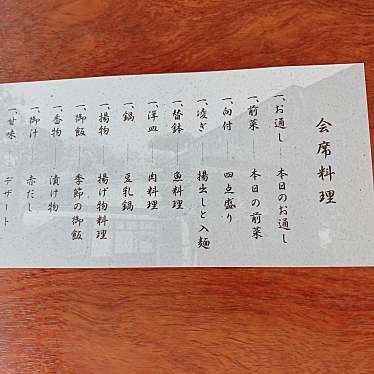 会席料理
一、お通し 本日のお通し
一、前菜 本日の前菜
一、向付 四点盛り
一、凌ぎ 揚出しと入麺
一、替鉢 魚料理
一、洋皿 肉料理
一、鍋 豆乳鍋
一、揚物 揚げ物料理
一、御飯 季節の御飯
一、香物 漬け物
一、御汁 赤だし
一、甘味 デザート